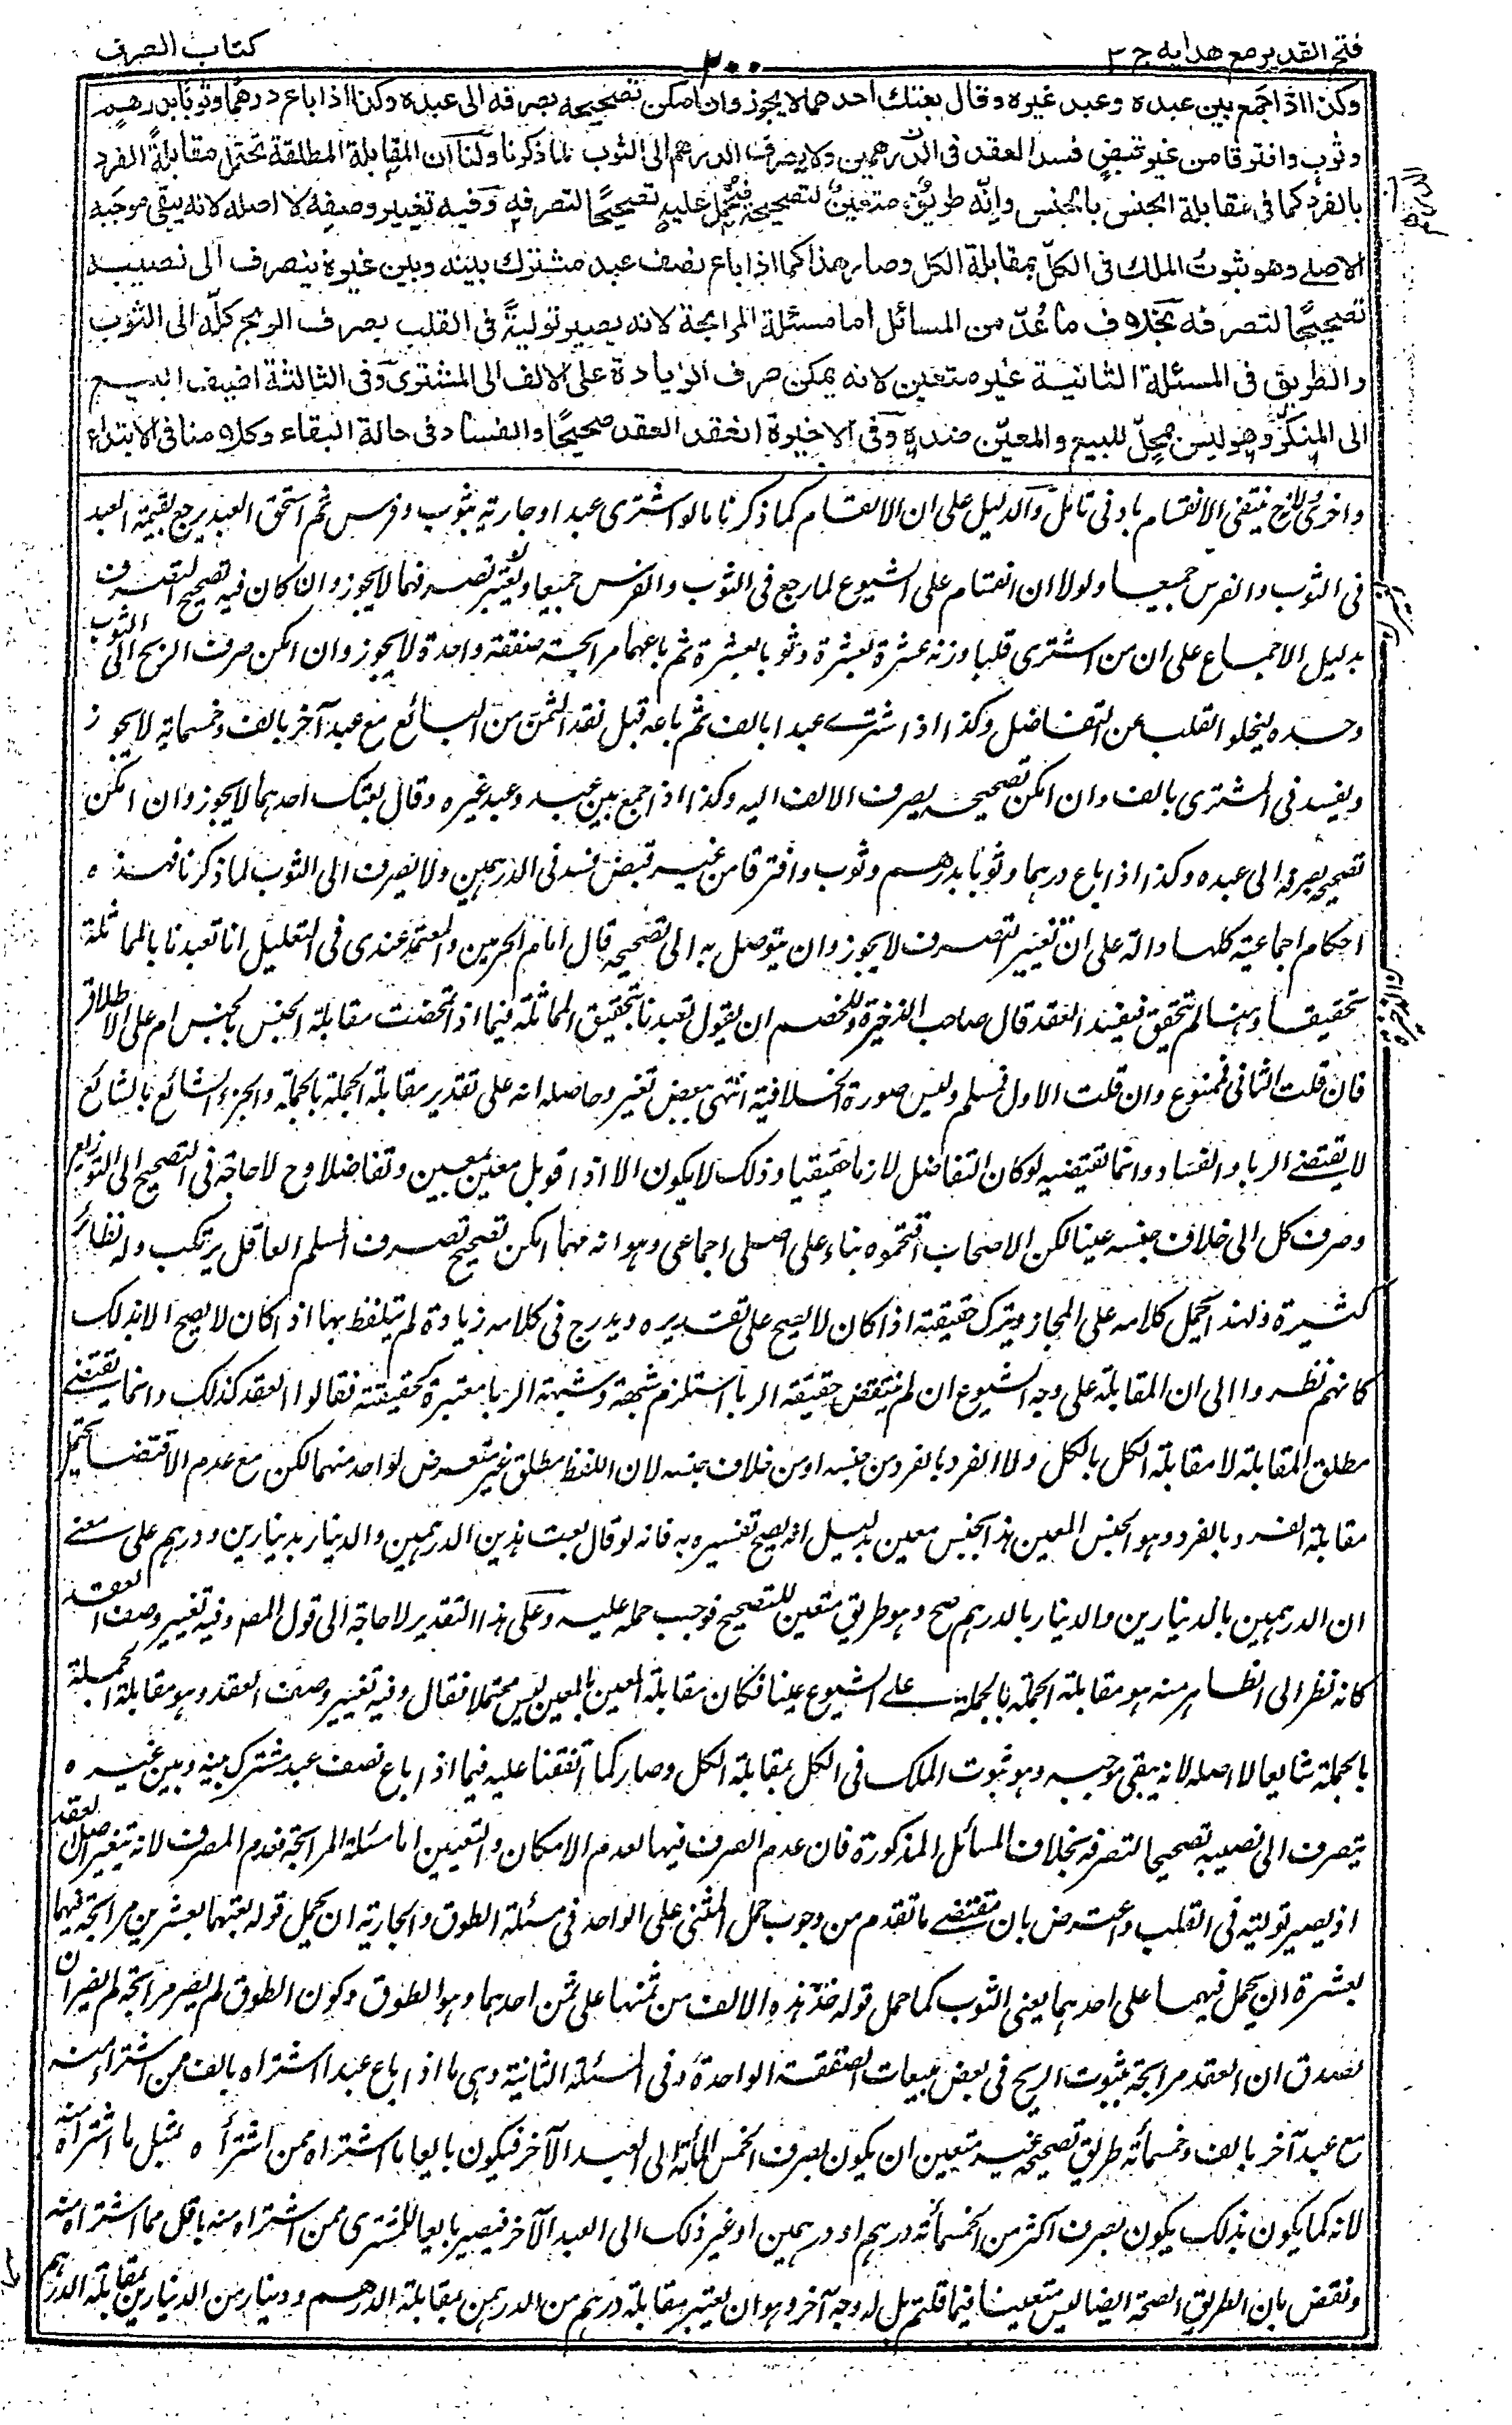 فتح القدير مع هدايه ج ٣
٣٠٠
كتاب الصرف
وكذا اذا جمع بين عبده وعبد غيره وقال بعتك احدهما لا يجوز وان امكن تصحيحه بصرفه الى عبده وكذا اذا باع درهما وثوبا بدرهم
وثوب وافترقا من غير قبض فسد العقد فى الدرهمين ولا يصرف الدرهم الى الثوب لما ذكرنا ولنا ان المقابلة المطلقة تحتمل مقابلة الفرد
بالفرد كما فى مقابلة الجنس بالجنس وانه طريق متعين لتصحيحه فيحمل عليه تصحيحا لتصرفه وفيه تغيير وصفه لا اصله لانه يبقى موجبه
الاصلى وهو ثبوت الملك فى الكل بمقابلة الكل وصار هذا كما اذا باع نصف عبد مشترك بينه وبين غيره ينصرف الى نصيبه
تصحيحا لتصرفه بخلاف ما عد من المسائل اما مسئلة المرابحة لانه يصير تولية فى القلب بصرف الربح كله الى الثوب
والطريق فى المسئلة الثانية غير متعين لانه يمكن صرف الزيادة على الالف الى المشترى وفى الثالثة اضيف البيع
الى المنكر وهو ليس محل للبيع والمعين ضده وفى الاخيرة انعقد العقد صحيحا والفساد فى حالة البقاء وكلامنا فى الابتداء
واخرى للاخ ينتفى الانقسام بادنى تامل والدليل على ان الانقسام كما ذكرنا ما لو اشترى عبدا او جارية بثوب وفرس ثم استحق العبد يرجع بقيمة العبد
فى الثوب والفرس جميعا ولولا ان انقسام على الشيوع لما رجع فى الثوب والفرس جميعا وتغيير تصرفهما لا يجوز وان كان فيه تصحيح التصرف
بدليل الاجماع على ان من اشترى قلبا وزنه عشرة بعشرة وثوبا بعشرة ثم باعهما مرابحة صفقة واحدة لا يجوز وان امكن صرف الربح الى الثوب
وحده ليخلو القلب عن التفاضل وكذا اذا اشترى عبدا بالف ثم باعه قبل نقد الثمن من البائع مع عبد آخر بالف وخمسماية لا يجوز
ويفسد فى المشترى بالف وان امكن تصحيحه بصرف الالف اليه وكذا اذا جمع بين عبده وعبد غيره وقال بعتك احدهما لا يجوز وان امكن
تصحيحه بصرفه الى عبده وكذا اذا باع درهما وثوبا بدرهم وثوب وافترقا من غير قبض فسد فى الدرهمين ولا يصرف الى الثوب لما ذكرنا فهذه
احكام اجماعية كلها دالة على ان تغيير التصرف لا يجوز وان يتوصل به الى تصحيحه قال امام الحرمين والمعتمد عندى فى التعليل انا تعبدنا بالمماثلة
تحقيقا وهنا لم تتحقق فيفسد العقد قال صاحب الذخيرة وللخصم ان يقول تعبدنا بتحقيق المماثلة فيما اذا تمحضت مقابلة الجنس بالجنس ام على الاطلاق
فان قلت الثانى فممنوع وان قلت الاول فمسلم وليس صورة الخلافية انتهى ببعض تغير وحاصله انه على تقدير مقابلة الجملة بالجملة والجزء الشائع بالشائع
لا يقتضى الربا والفساد وانما تقتضيه لو كان التفاضل لازما حقيقيا وذلك لا يكون الا اذا قوبل معين بمعين وتفاضلا وح لا حاجة فى التصحيح الى التوزيع
وصرف كل الى خلاف جنسه عينا لكن الاصحاب اقتحموه بناء على اصل اجماعى وهو انه مهما امكن تصحيح تصرف المسلم العاقل يرتكب وله نظائر
كثيرة ولهذا يحمل كلامه على المجاز ويترك حقيقته اذا كان لا يصح على تقديره ويدرج فى كلامه زيادة لم يتلفظ بها اذا كان لا يصح الا بذلك
كانهم نظروا الى ان المقابلة على وجه الشيوع ان لم يقتض حقيقة الربا استلزم شبهته وشبهة الربا معتبرة كحقيقته فقالوا العقد كذلك وانما يقتضى
مطلق المقابلة لا مقابلة الكل بالكل ولا الفرد بالفرد من جنسه او من خلاف جنسه لان اللفظ مطلق غير متعرض لواحد منهما لكن مع عدم الاقتضا يحتمل
مقابلة الفرد بالفرد وهو الجنس المعين بذا الجنس معين بدليل انه يصح تفسيره به فانه لو قال بعت هذين الدرهمين والدينار بدينارين ودرهم على معنى
ان الدرهمين بالدينارين والدينار بالدرهم صح وهو طريق متعين للتصحيح فوجب حمله عليه وعلى هذا التقدير لا حاجة الى قول المصـ وفيه تغيير وصف العقد
كانه نظر الى الظاهر منه هو مقابلة الجملة بالجملة على الشيوع عينا فكان مقابلة المعين بالمعين ليس محتملا فقال وفيه تغيير وصف العقد وهو مقابلة الجملة
بالجملة شايعا لا اصله لانه يبقى موجبه وهو ثبوت الملك فى الكل بمقابلة الكل وصار كما اتفقنا عليه فيما اذا باع نصف عبد مشترك بينه وبين غيره
يتصرف الى نصيبه تصحيحا لتصرفه بخلاف المسائل المذكورة فان عدم الصرف فيها لعدم الامكان والتعيين اما مسئلة المرابحة فعدم الصرف لانه يتغير اصل العقد
اذ يصير تولية فى القلب واعترض بان مقتضى ما تقدم من وجوب حمل المثنى على الواحد فى مسئلة الطوق والجارية ان يحمل قوله بعتهما بعشرين مرابحة فيهما
بعشرة ان يحمل فيهما على احدهما يعنى الثوب كما حمل قوله خذ هذه الالف من ثمنها على ثمن احدهما وهو الطوق وكون الطوق لم يصر مرابحة لم يضر ان
يصدق ان العقد مرابحة بثبوت الربح فى بعض مبيعات الصفقة الواحدة وفى المسئلة الثانية وهى ما اذا باع عبدا اشتراه بالف ممن اشتراه منه
مع عبد آخر بالف وخمسمأته طريق تصحيحه غير متعين ان يكون بصرف الخمس المأتة الى العبد الآخر فيكون بايعا ما اشتراه ممن اشتراه بمثل ما اشتراه منه
لانه كما يكون بذلك يكون بصرف اكثر من الخمسمأته درهم او درهمين او غير ذلك الى العبد الآخر فيصير بايعا للمشترى ممن اشتراه منه باقل مما اشتراه منه
ونقض بان الطريق الصحة ايضا ليس متعينا فيما قلتم بل له وجه آخر وهو ان يعتبر مقابلة درهم من الدرهمين بمقابلة الدرهم ودينار من الدينارين بمقابلة الدرهم